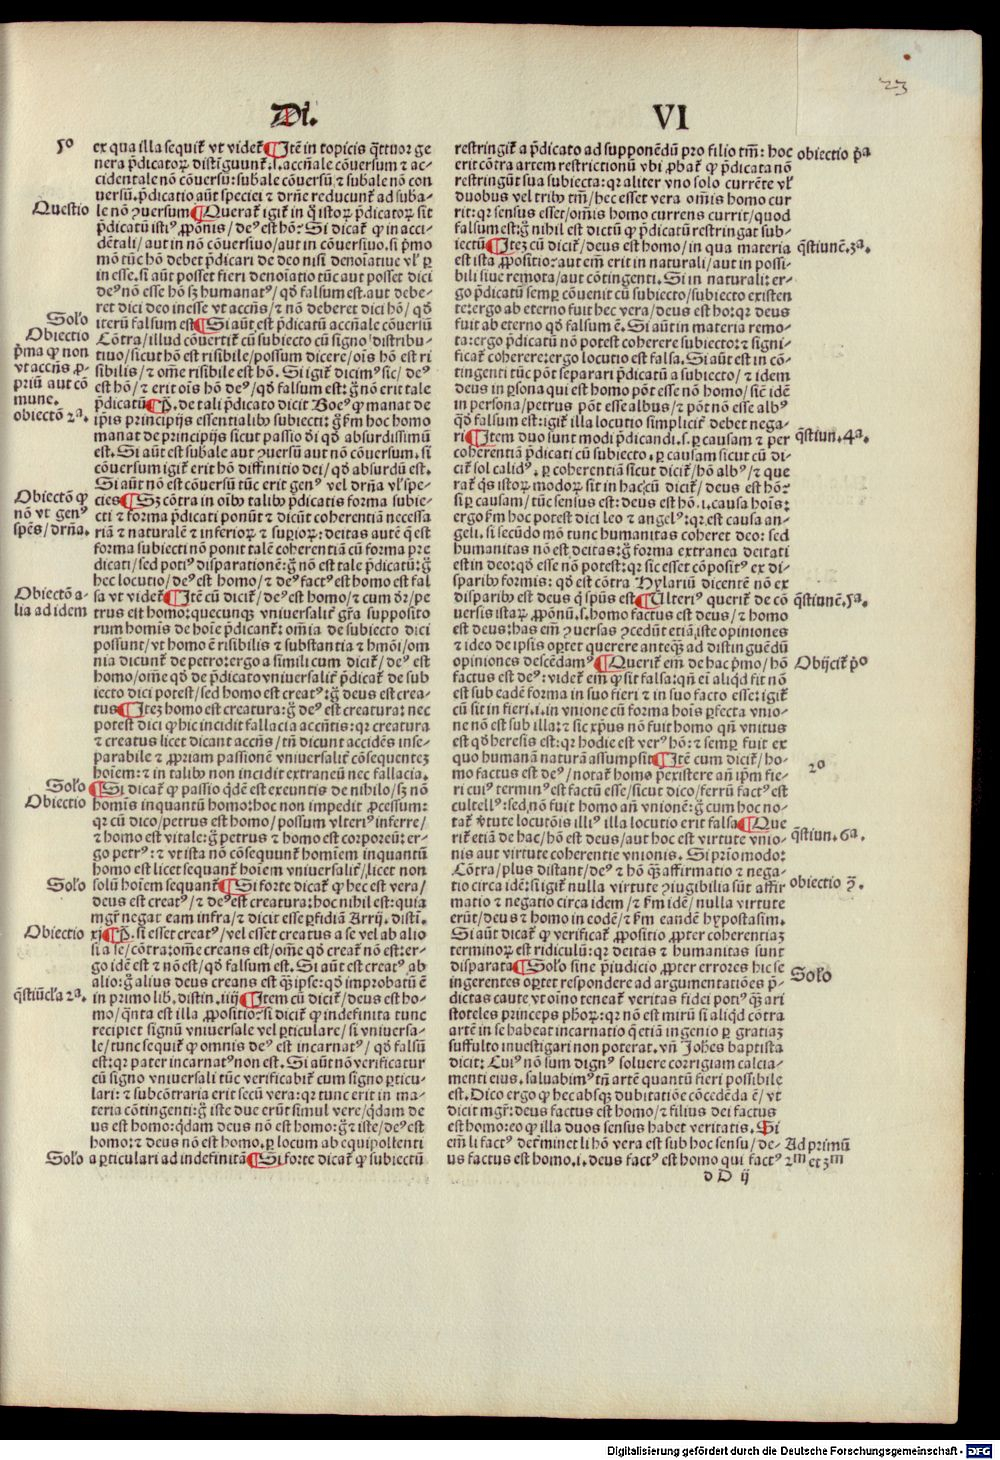 23
Di. VI
5º
ex qua illa sequit᷑ vt videt᷑ ¶ Itē in topicis q̄ttuor ge
nera p̄dicatoꝝ distīguunt᷑. s. accn̄ale cōuersum ⁊ ac-
cidentale nō cōuersū: sub̄ale cōuersū, ⁊ sub̄ale nō con
uersū. p̄dicatio aūt speciei ⁊ dr̄ne reducunt᷑ ad suba-
Questio
le nō ꝯuersum ¶ Querat᷑ igit᷑ in q̄ istoꝝ p̄dicatoꝝ sit
p̄dicatū istiꝰ ꝓpōnis/ deꝰ est hō: Si dicat᷑ ꝙ in acci-
dētali/ aut in nō cōuersiuo/aut in cōuersiuo. si p̄mo
mō tūc hō debet p̄dicari de deo nisi denoīatiue vl᷑ ꝑ
in esse. si aūt posset fieri denoīatio tūc aut posset dici
deꝰ nō esse hō sꝫ humanatꝰ/ qd̄ falsum est. aut debe-
ret dici deo inesse vt accn̄s/ ⁊ nō deberet dici hō/ qd̄
Solo
iterū falsum est ¶ Si aūt est p̄dicatū accn̄ale cōuersū
Obiectio
p̄ma ꝙ non
vt accn̄s ꝓ-
priū aut cō
mune.
Cōtra/ illud cōuertit᷑ cū subiecto cū signo distribu-
tiuo/ sicut hō est risibile/ possum dicere/ oīs hō est ri
sibilis/ ⁊ om̄e risibile est hō. Si igit᷑ dicimꝰ sic/ deꝰ
est hō/ ⁊ erit oīs hō deꝰ/ qd̄ falsum est: g̊ nō erit tale
obiectō 2ª.
p̄dicatū ¶ P̄. de tali p̄dicato dicit Boeꝰ ꝙ manat de
ip̄is principijs essentialibꝫ subiecti: g̊ ẜm hoc homo
manat de principijs sicut passio dī qd̄ absurdissimū
est. Si aūt est sub̄ale aut ꝯuersū aut nō cōuersum. si
cōuersum igit᷑ erit hō diffinitio dei/ qd̄ absurdū est.
Si aūt nō est cōuersū tūc erit genꝰ vel dr̄na vl᷑ spe-
Obiectō ꝙ
nō vt genꝰ
spēs/ dr̄na.
cies ¶ Sꝫ cōtra in oībꝫ talibꝫ p̄dicatis forma subie-
cti ⁊ forma p̄dicati ponūt ⁊ dicūt coherentiā necessa
riā ⁊ naturalē ⁊ inferioꝝ ⁊ suꝑioꝝ: deitas autē q̄ est
forma subiecti nō ponit talē coherentiā cū forma pre
dicati/ sed potiꝰ disparationē: g̊ nō est tale p̄dicatū: g̊
hec locutio/ deꝰ est homo/ ⁊ deꝰ factꝰ est homo est fal
Obiectō a-
lia ad idem
sa vt videt᷑ ¶ Itē cū dicit᷑/ deꝰ est homo/ ⁊ cum dr̄/ pe
trus est homo: quecunqꝫ vniuersalit᷑ gr̄a supposito
rum homīs de hoīe p̄dicant᷑: om̄ia de subiecto dici
possunt/ vt homo ē risibilis ⁊ substantia ⁊ hmōi/ om
nia dicunt᷑ de petro: ergo a simili cum dicit᷑/ deꝰ est
homo/ om̄e qd̄ de p̄dicato vniuersalit᷑ p̄dicat᷑ de sub
iecto dici potest/ sed homo est creatꝰ: g̊ deus est crea-
tus ¶ Itez homo est creatura: g̊ deꝰ est creatura: nec
potest dici ꝙ hic incidit fallacia accn̄tis: qꝛ creatura
⁊ creatus licet dicant accn̄s/ tn̄ dicunt accidēs inse-
parabile ⁊ ꝓpriam passionē vniuersalit᷑ cōsequentez
hoīem: ⁊ in talibꝫ non incidit extraneū nec fallacia.
Solo
¶ Si dicat᷑ ꝙ passio q̄dē est exeuntis de nihilo/ sꝫ nō
Obiectio
homīs inquantū homo: hoc non impedit ꝓcessum:
qꝛ cū dico/ petrus est homo/ possum vlteriꝰ inferre/
⁊ homo est vitale: g̊ petrus ⁊ homo est corporeū: er-
go petrꝰ: ⁊ vt ista nō cōsequunt᷑ homīem inquantū
homo est licet sequant᷑ hoīem vniuersalit᷑/ licet non
Solo
solū hoīem sequant᷑ ¶ Si forte dicat᷑ ꝙ hec est vera/
deus est creatꝰ/ ⁊ deꝰ est creatura: hoc nihil est: quia
mgr̄ negat eam infra/ ⁊ dicit esse ꝑfidiā Arrij. disti.
Obiectio
xj ¶ P̄. si esset creatꝰ/ vel esset creatus a se vel ab alio
si a se/ cōtra: om̄e creans est/ om̄e qd̄ creat᷑ nō est: er-
go idē est ⁊ nō est/ qd̄ falsum est. Si aūt est creatꝰ ab
alio: g̊ alius deus creans est q̄ꝫ ipse: qd̄ improbatū ē
q̄stiūcl̄a 2ª.
in primo lib. distin. iiij ¶ Item cū dicit᷑/ deus est ho-
mo/ q̄nta est illa ꝓpositio: si dicit᷑ ꝙ indefinita tunc
recipiet signū vniuersale vel ꝑticulare/ si vniuersa-
le/ tunc sequit᷑ ꝙ omnis deꝰ est incarnatꝰ/ qd̄ falsū
est: qꝛ pater incarnatꝰ non est. Si aūt nō verificatur
cū signo vniuersali tūc verificabit᷑ cum signo ꝑticu-
lari: ⁊ subcōtraria erit secū vera: qꝛ tunc erit in ma-
teria cōtingenti: g̊ iste due erūt simul vere/ q̄dam de
us est homo: q̄dam deus nō est homo: g̊ iste/ deꝰ est
homo: ⁊ deus nō est homo. ꝑ locum ab equipollenti
Solo
a ꝑticulari ad indefinitā ¶ Si forte dicat᷑ ꝙ subiectū
restringit᷑ a p̄dicato ad supponēdū pro filio tm̄: hoc
obiectio p̄ª
erit cōtra artem restrictionū vbi ꝓbat᷑ ꝙ p̄dicata nō
restringūt sua subiecta: qꝛ aliter vno solo currēte vl᷑
duobus vel tribꝫ tm̄/ hec esset vera om̄is homo cur
rit: qꝛ sensus esset/ om̄is homo currens currit/ quod
falsum est: g̊ nihil est dictū ꝙ p̄dicatū restringat sub-
iectū ¶ Itez cū dicit᷑/ deus est homo/ in qua materia
q̄stiunē. 3ª.
est ista ꝓpositio: aut em̄ erit in naturali/ aut in possi-
bili siue remota/ aut cōtingenti. Si in naturali: er-
go p̄dicatū semꝑ cōuenit cū subiecto/ subiecto existen
te: ergo ab eterno fuit hec vera/ deus est ho: qꝛ deus
fuit ab eterno qd̄ falsum ē. Si aūt in materia remo-
ta: ergo p̄dicatū nō potest coherere subiecto: ⁊ signi-
ficat᷑ coherere: ergo locutio est falsa. Si aūt est in cō-
tingenti tūc pōt separari p̄dicatū a subiecto/ ⁊ idem
deus in ꝑsona qui est homo pōt esse nō homo/ sic idē
in persona/ petrus pōt esse albus/ ⁊ pōt nō esse albꝰ
q̄d̄ falsum est: igit᷑ illa locutio simplicit᷑ debet nega-
ri ¶ Item duo sunt modi p̄dicandi. s. ꝑ causam ⁊ per
q̄stiun. 4ª.
coherentiā p̄dicati cū subiecto. ꝑ causam sicut cū di-
cit᷑ sol calidꝰ. ꝑ coherentiā sicut dicit᷑/ hō albꝰ/ ⁊ que
rat᷑ q̄s istoꝝ modoꝝ sit in hac: cū dicit᷑/ deus est hō:
si ꝑ causam/ tūc sensus est: deus est hō. i. causa hoīs:
ergo ẜm hoc potest dici leo ⁊ angelꝰ: qꝛ est causa an-
geli. si secūdo mō tunc humanitas coheret deo: sed
humanitas nō est deitas: g̊ forma extranea deitati
est in deo: qd̄ esse nō potest: qꝛ sic esset cōpositꝰ ex di-
sparibꝫ formis: qd̄ est cōtra Hylariū dicentē nō ex
disparibꝫ est deus q̄ sp̄ūs est ¶ Ulteriꝰ querit᷑ de cō
q̄stiunē. 5ª.
uersis istaꝝ ꝓpōnū. s. homo factus est deus/ ⁊ homo
est deus: has em̄ ꝯuersas ꝯcedūt etiā, iste opiniones
⁊ ideo de ipsis oꝑtet querere anteq̄ꝫ ad distinguēdū
opiniones descēdamꝰ ¶ Querit᷑ em̄ de hac p̄mo/ hō
Obijcit᷑ pº
factus est deꝰ: videt᷑ em̄ ꝙ sit falsa: qn̄ ei aliqd̄ fit nō
est sub eadē forma in suo fieri ⁊ in suo facto esse: igit᷑
cū sit in fieri. i. in vnione cū forma hoīs ꝑfecta vnio-
ne nō est sub illa: ⁊ sic xp̄us nō fuit homo qn̄ vnitus
est qd̄ heresis est: qꝛ hodie est verꝰ hō: ⁊ semꝑ fuit ex
quo humanā naturā assumpsit ¶ Itē cum dicit᷑/ ho-
2º
mo factus est deꝰ/ notat᷑ homo p̄existere añ ip̄m fie-
ri cui terminꝰ est factū esse/ sicut dico/ ferrū factꝰ est
cultellꝰ: sed, nō fuit homo añ vnionē: g̊ cum hoc no-
tat᷑ v̓tute locutōis illiꝰ illa locutio erit falsa ¶ Que
rit᷑ etiā de hac/ hō est deus/ aut hoc est virtute vnio-
q̄stiun. 6ª.
nis aut virtute coherentie vnionis. Si prīo modo:
Cōtra/ plus distant/ deꝰ ⁊ hō q̄ꝫ affirmatio ⁊ nega-
tio circa idē: si igit᷑ nulla virtute ꝯiugibilia sūt affir
obiectio 2̄.
matio ⁊ negatio circa idem/ ⁊ ẜm idē/ nulla virtute
erūt/ deus ⁊ homo in eodē/ ⁊ ẜm eandē hypostasim.
Si aūt dicat᷑ ꝙ verificat᷑ ꝓpositio ꝓpter coherentiaz
terminoꝝ est ridiculū: qꝛ deitas ⁊ humanitas sunt
disparata ¶ Solo sine p̄iudicio ꝓpter errores hic se
Solo
ingerentes oꝑtet respondere ad argumentatiōes p̄-
dictas caute, vt oīno teneat᷑ veritas fidei potiꝰ q̄ꝫ ari
stoteles princeps ph̄oꝝ: qꝛ nō est mirū si aliqd̄ cōtra
artē in se habeat incarnatio q̄ etiā ingenio ꝑ gratiaz
suffulto inuestigari non poterat. vn̄ Joh̄es baptista
dicit: Cuiꝰ nō sum dignꝰ soluere corrigiam calcia-
menti eius. saluabimꝰ tn̄ artē quantū fieri possibile
est. Dico ergo ꝙ hec absqꝫ dubitatiōe cōcedēda ē/ vt
dicit mgr̄: deus factus est homo/ ⁊ filius dei factus
est homo: eo ꝙ illa duos sensus habet veritatis. Si
em̄ li factꝰ det̓minet li hō vera est sub hoc sensu/ de-
Ad primū
us factus est homo. i. deus factꝰ est homo qui factꝰ
2m et 3m
d D ij
Digitalisierung gefördert durch die Deutsche Forschungsgemeinschaft - DFG